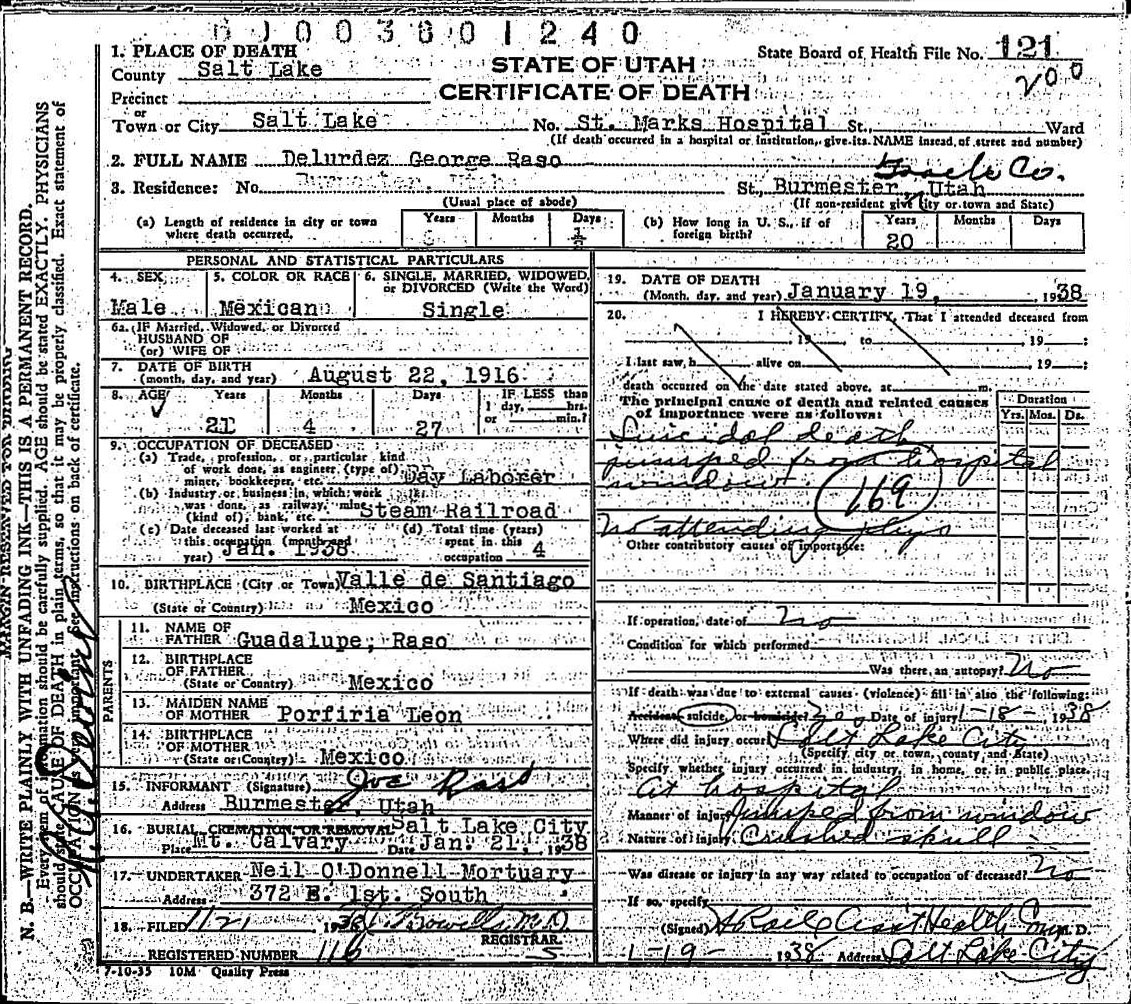 6 1 0 0 3 8 0 1 2 4 0
STATE OF UTAH
CERTIFICATE OF DEATH
State Board of Health File No. 121
200
1. PLACE OF DEATH
County Salt Lake
Precinct
or
Town or City Salt Lake No. St. Marks Hospital St., Ward
(If death occurred in a hospital or institution, give its NAME instead of street and number)
2. FULL NAME Delurdez George Raso
Tooele Co.
3. Residence: No. Burmester, Utah St., Burmester, Utah
(Usual place of abode) (If non-resident give city or town and State)
(a) Length of residence in city or town where death occurred. Years Months Days
(b) How long in U. S., if of foreign birth? Years 20 Months Days
PERSONAL AND STATISTICAL PARTICULARS
4. SEX Male
5. COLOR OR RACE Mexican
6. SINGLE, MARRIED, WIDOWED, or DIVORCED (Write the Word) Single
6a. IF Married, Widowed, or Divorced
HUSBAND OF
(or) WIFE OF
7. DATE OF BIRTH
(month, day, and year) August 22, 1916
8. AGE Years 21 Months 4 Days 27 IF LESS than 1 day, hrs. or min.?
9. OCCUPATION OF DECEASED
(a) Trade, profession, or particular kind
of work done, as engineer (type of)
miner, bookkeeper, etc. Day Laborer
(b) Industry or business in which work
was done, as railway, mine
(kind of), bank, etc. Steam Railroad
(c) Date deceased last worked at
this occupation (month and
year) Jan. 1938
(d) Total time (years)
spent in this
occupation 4
10. BIRTHPLACE (City or Town) Valle de Santiago
(State or Country) Mexico
PARENTS
11. NAME OF
FATHER Guadalupe, Raso
12. BIRTHPLACE
OF FATHER
(State or Country) Mexico
13. MAIDEN NAME
OF MOTHER Porfiria Leon
14. BIRTHPLACE
OF MOTHER
(State or Country) Mexico
15. INFORMANT (Signature) Joe Raso
Address Burmester, Utah
16. BURIAL, CREMATION, OR REMOVAL Salt Lake City
Place Mt. Calvary Date Jan. 21, 1938
17. UNDERTAKER Neil O'Donnell Mortuary
Address 372 E. 1st. South
18. FILED 1/21 1938 M.D.
REGISTRAR.
REGISTERED NUMBER 116
7-10-35 10M Quality Press
19. DATE OF DEATH
(Month, day, and year) January 19, 1938
20. I HEREBY CERTIFY, That I attended deceased from
19 to 19
I last saw h alive on 19
death occurred on the date stated above, at m.
The principal cause of death and related causes
of importance were as follows:
Duration
Yrs. Mos. Ds.
Suicidal death
jumped from hospital
window
169
attending phys
Other contributory causes of importance:
If operation, date of No
Condition for which performed
Was there an autopsy? No
If death was due to external causes (violence) fill in also the following:
Accident, suicide, or homicide? Date of injury 1-18-1938
Where did injury occur? Salt Lake City
(Specify city or town, county and State)
Specify whether injury occurred in industry, in home, or in public place.
At hospital
Manner of injury Jumped from window
Nature of injury Crushed skull
Was disease or injury in any way related to occupation of deceased? No
If so, specify
(Signed) Asst Health M. D.
1-19-1938 Address Salt Lake City
MARGIN RESERVED FOR BINDING
N. B.—WRITE PLAINLY WITH UNFADING INK—THIS IS A PERMANENT RECORD.
Every item of information should be carefully supplied. AGE should be stated EXACTLY. PHYSICIANS
should state CAUSE OF DEATH in plain terms, so that it may be properly classified. Exact statement of
OCCUPATION is very important. See instructions on back of certificate.